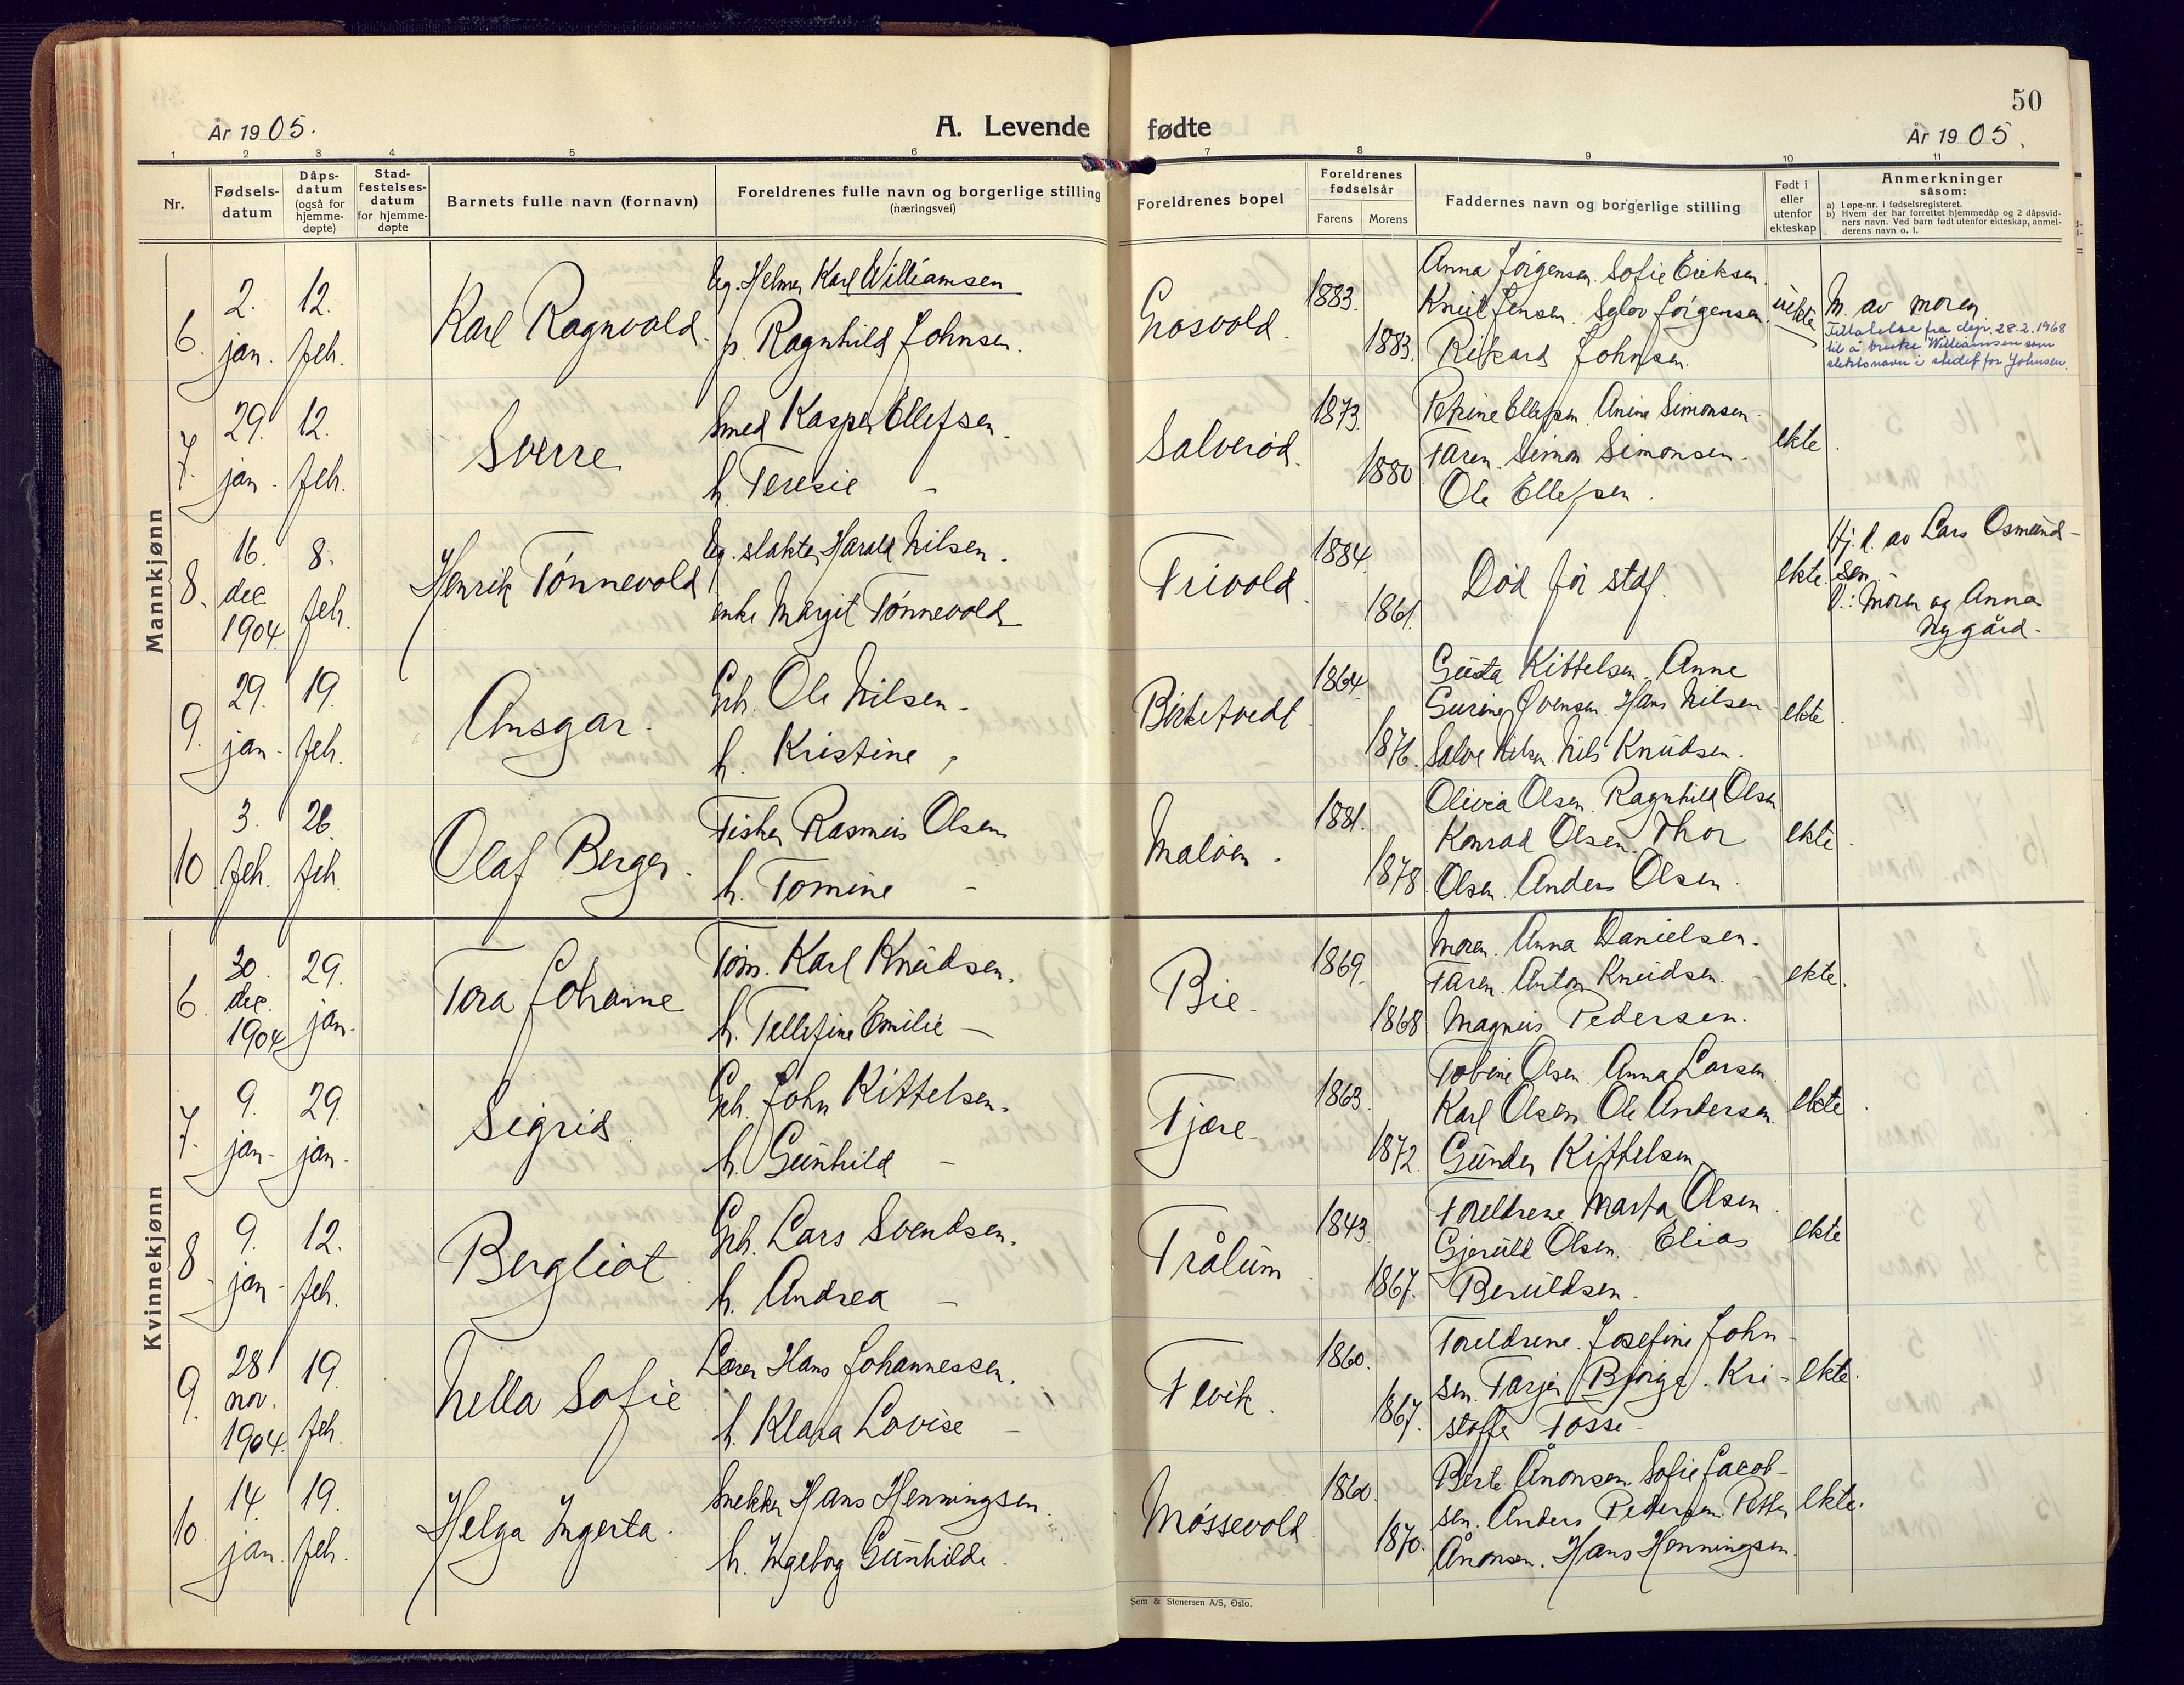 50
År 1905.
A. Levende fødte
År 1905.
1 2 3 4 5 6 7 8 9 10 11
Nr.
Fødsels-
datum
Dåps-
datum
(også for
hjemme-
døpte)
Stad-
festelses-
datum
for hjemme-
døpte
Barnets fulle navn (fornavn)
Foreldrenes fulle navn og borgerlige stilling
(næringsvei)
Foreldrenes bopel
Foreldrenes
fødselsår
Farens Morens
Faddernes navn og borgerlige stilling
Født i
eller
utenfor
ekteskap
Anmerkninger
såsom:
a) Løpe-nr. i fødselsregisteret.
b) Hvem der har forrettet hjemmedåp og 2 dåpsvid-
ners navn. Ved barn født utenfor ekteskap, anmel-
derens navn o. l.
Mannkjønn
6. 2. jan. 12. feb. Karl Ragnvald.
Ug. Helmer Karl Williamsen
p. Ragnhild Johnsen.
Grosvold. 1883. 1883.
Anna Jörgensen. Sofie Eriksen.
Knut Jensen. Sglov Jörgensen
Rikard Johnsen.
uekte
M. av moren
Tillatelse fra dep. 28.2.1968
til å bruke Williamsen som
slektsnavn i stedet for Johnsen.
7. 29. jan. 12. feb. Sverre
Smed Kasper Ellefsen.
h. Teresie -
Salveröd. 1873. 1880
Petrine Ellefsen. Anine Simonsen.
Faren. Simon Simonsen.
Ole Ellefsen.
ekte.
8. 16. dec 1904. 8. feb. Henrik Tönnevold
Ug. slakter Harald Nilsen.
enke Margit Tönnevold
Frivold. 1884 1861.
Död för stdf.
ekte
Hj. d. av Lars Osmund-
sen.
V.: Moren og Anna
Nygård.
9. 29. jan. 19. feb. Ansgar.
Grb. Ole Nilsen.
h. Kristine,
Birketvedt. 1864. 1876.
Gusta Kittelsen. Anne
Gurine Svensen. Hans Nilsen
Salve Nilsen. Nils Knudsen.
ekte.
10 3. feb. 26. feb. Olaf Berger.
Fisker Rasmus Olsen
h. Tomine -
Malöen. 1881. 1878.
Olivia Olsen. Ragnhild Olsen
Konrad Olsen. Thor
Olsen. Anders Olsen.
ekte.
Kvinnekjønn
6. 30. dec. 1904 29. jan. Tora Johanne
Töm. Karl Knudsen.
h. Tellefine Emilie -
Bie. 1869. 1868
Moren. Anna Danielsen.
Faren. Anton Knudsen.
Magnus Pedersen.
ekte.
7. 9. jan. 29. jan. Sigrid
Grb. John Kittelsen.
h. Gunhild -
Fjære. 1863. 1872.
Tobine Olsen. Anna Larsen.
Karl Olsen. Ole Andersen.
Gunder Kittelsen.
ekte.
8. 9. jan. 12. feb. Bergliot.
Grb. Lars Svendsen.
h. Andrea -
Trålum. 1843. 1867.
Foreldrene. Marta Olsen.
Gjeruld Olsen. Elias
Beruldsen.
ekte
9. 28 nov. 1904. 19. feb. Nella Sofie
Lærer Hans Johannessen.
h. Klara Lovise -
Fevik. 1860. 1867.
Foreldrene. Josefine John-
sen. Tarjei Bjorge. Kri-
stoffer Fosse.
ekte.
10. 14. jan. 19. feb. Helga Ingerta.
Snekker Hans Henningsen.
h. Ingeborg Gunhilde.
Mössevold 1860. 1870.
Berte Ånonsen. Sofie Jacob-
sen. Anders Pedersen. Petter
Ånonsen. Hans Henningsen.
ekte.
Sem & Stenersen A/S, Oslo.